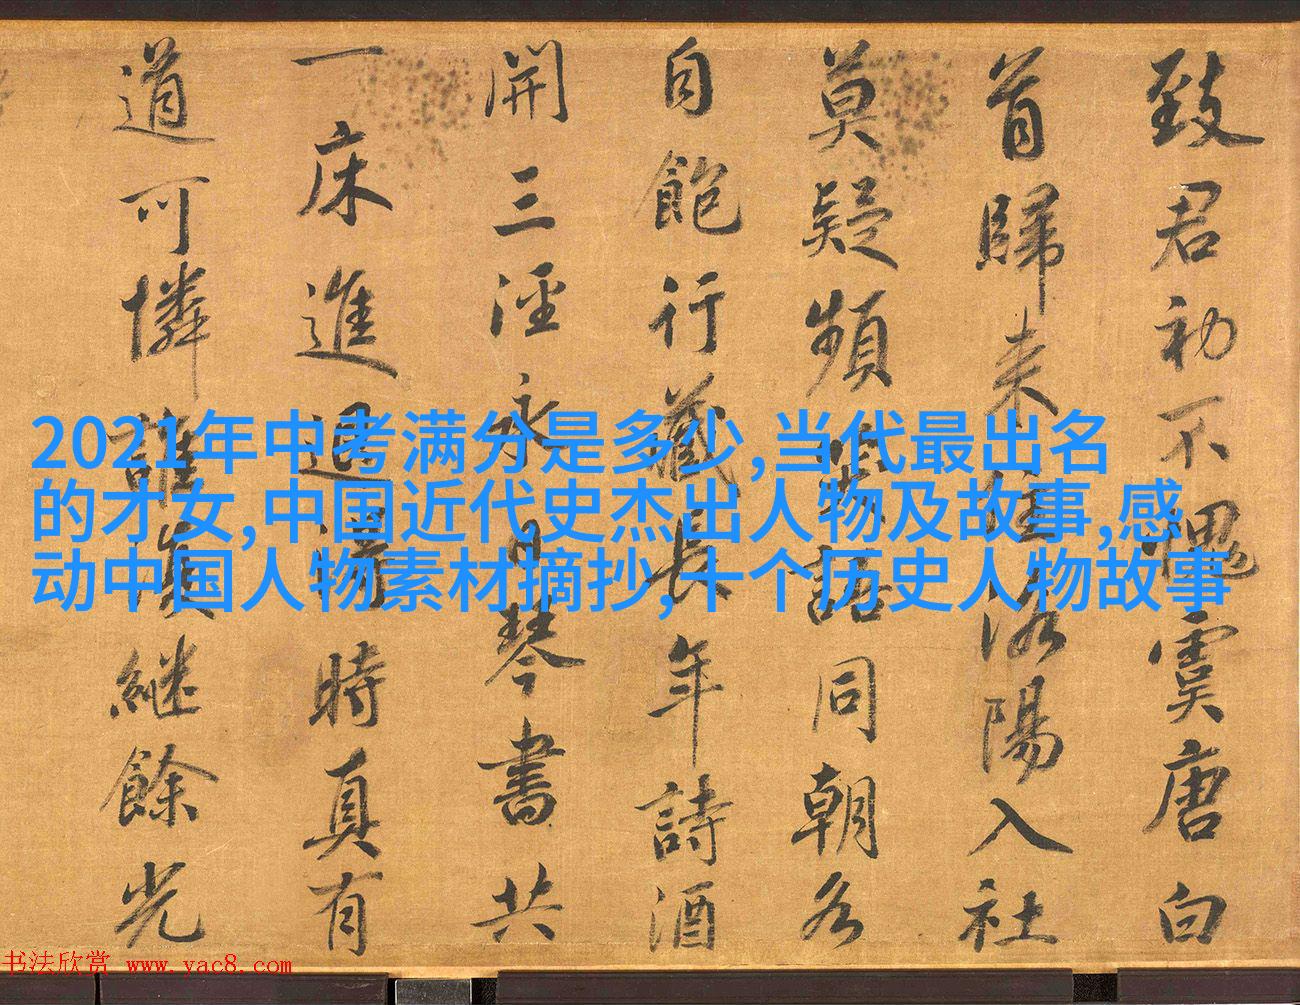 致君初不愧虞唐白
首歸来洛陽入社
莫疑頻語同朝各
自飽行藏長年詩酒
開三涇永日琴書共
一床進退時真有
道可憐誰繼餘光
2021年中考满分是多少,当代最出名
的才女,中国近代史杰出人物及故事,感
动中国人物素材摘抄,十个历史人物故事
书法欣赏 www.yac8.com